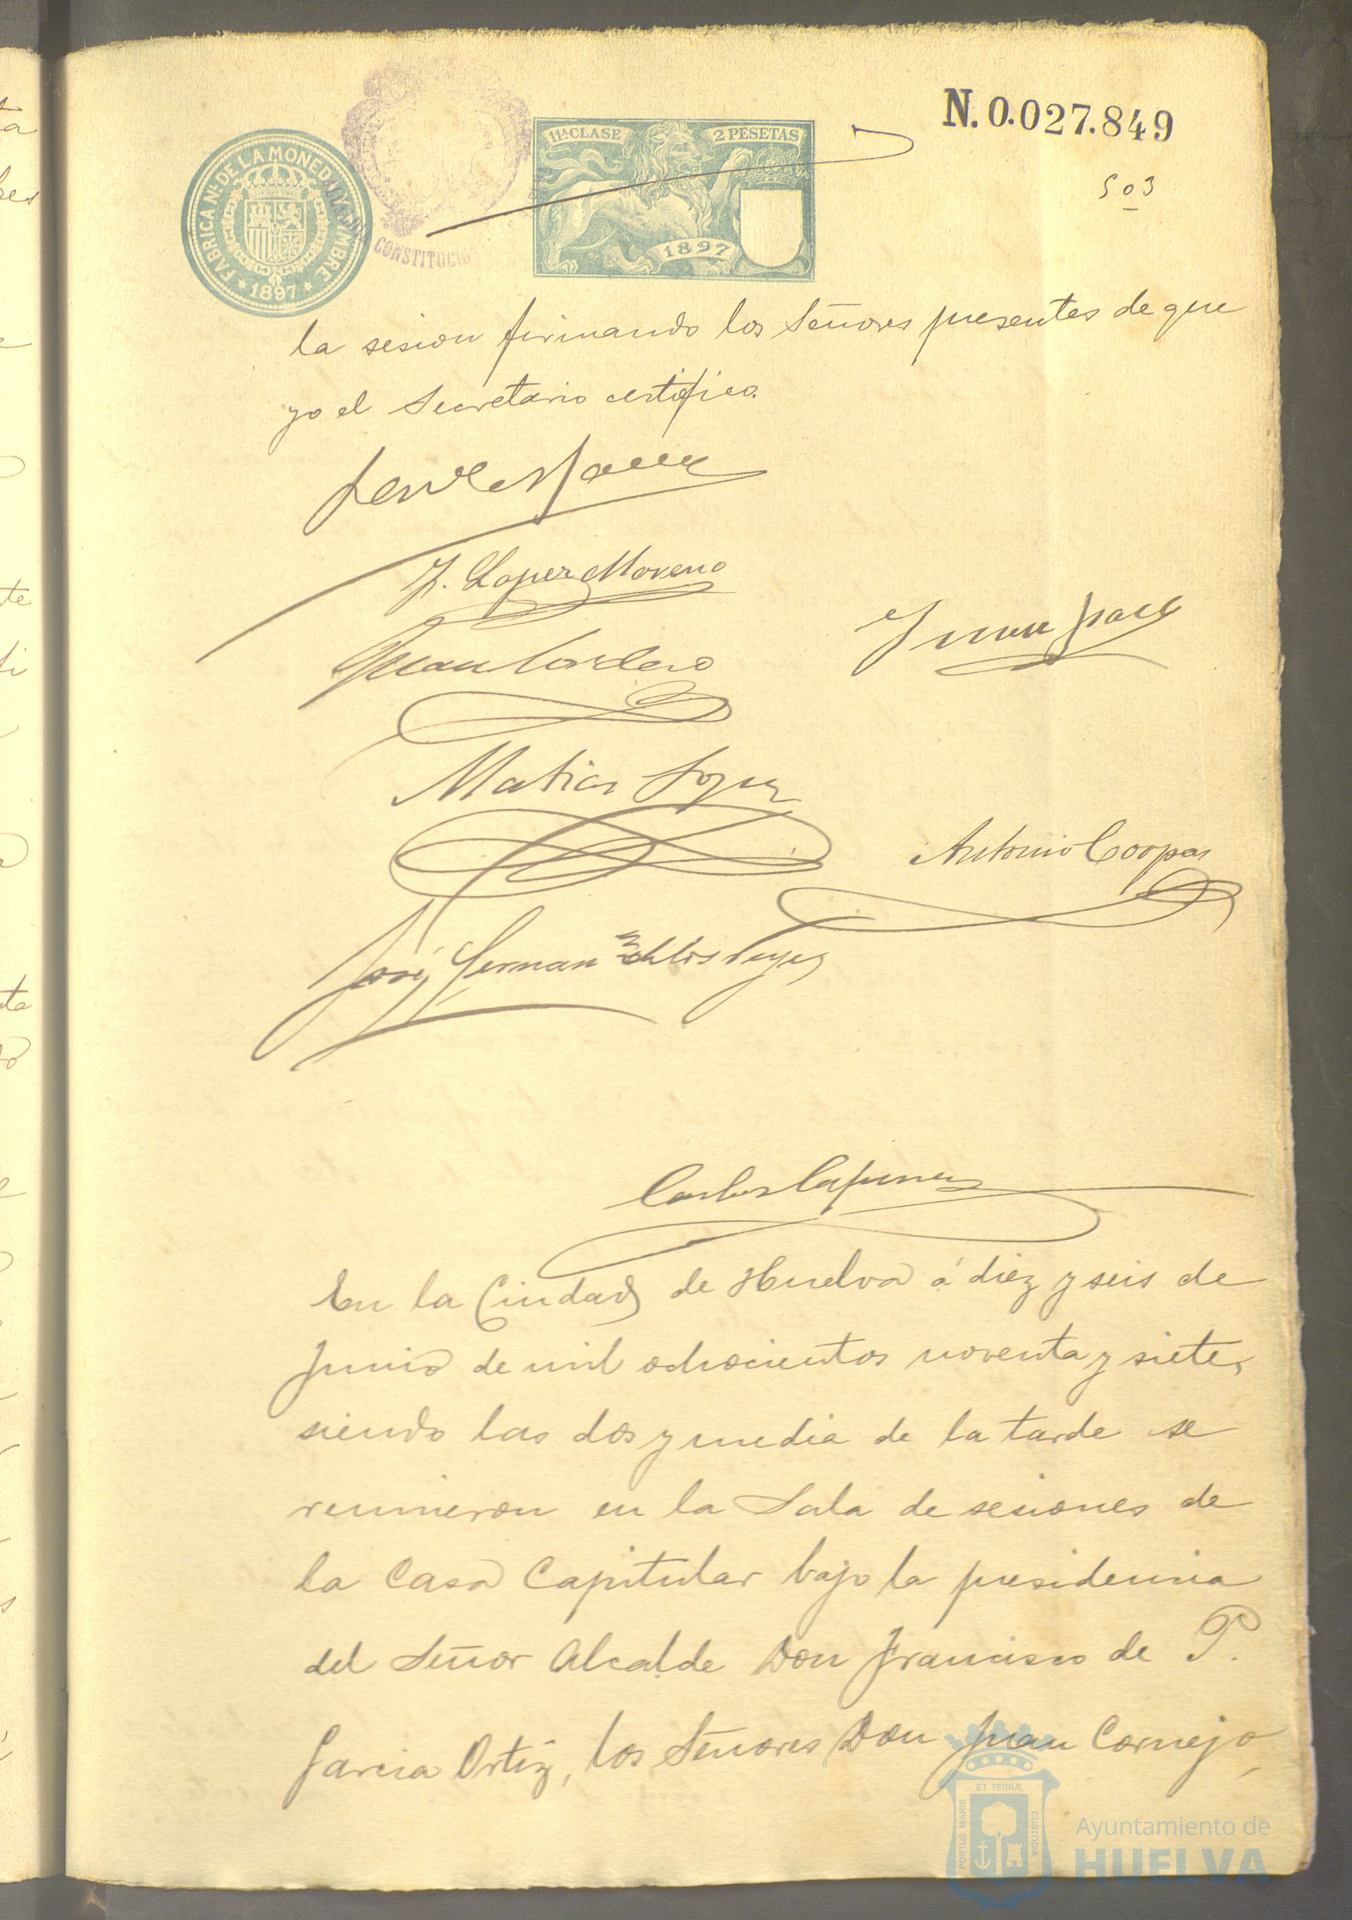 N. 0.027.849
503
11ª CLASE 2 PESETAS
1897
FABRICA Nal. DE LA MONEDA Y TIMBRE
* 1897 *
CONSTITUCIO
la sesion firmando los Señores presentes de que
yo el Secretario certifico.
J. Lopez Moreno
Juan Cordero
Matias Lopez
Antonio Corpas
José Hernanz de los Reyes
Carlos
En la Ciudad de Huelva á diez y seis de
Junio de mil ochocientos noventa y siete,
siendo las dos y media de la tarde se
reunieron en la Sala de sesiones de
la Casa Capitular bajo la presidencia
del Señor Alcalde Don Francisco de P.
Garcia Ortiz, los Señores Don Juan Cornejo,
PORTUS MARIS ET TERRÆ CUSTODIA
Ayuntamiento de
HUELVA